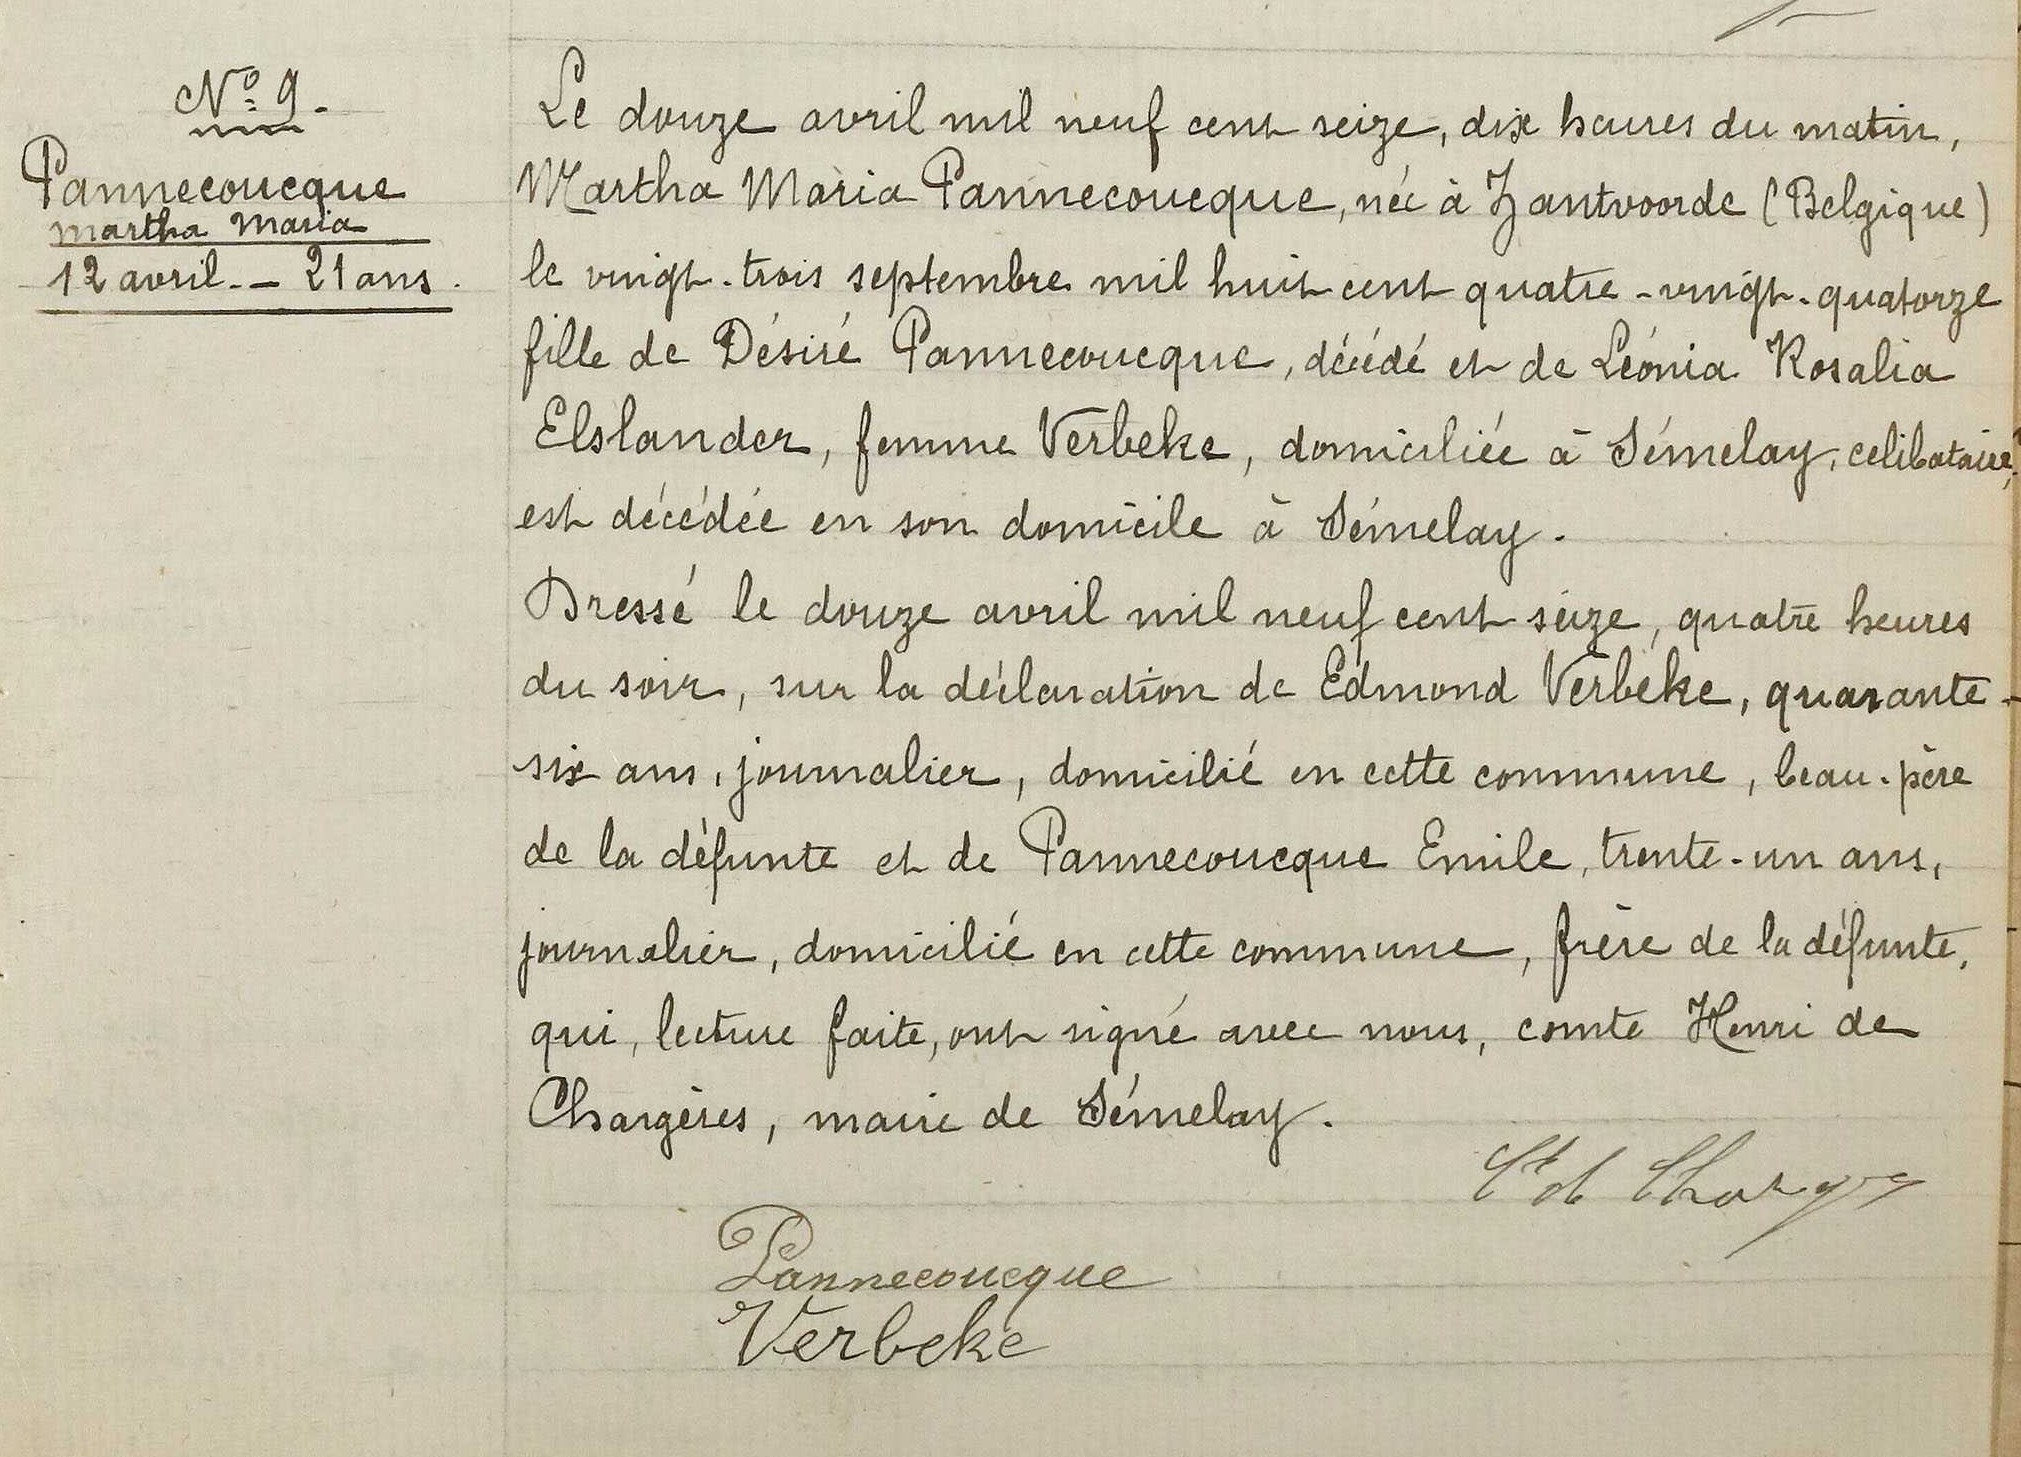 N° 9.
Pannecoucque
Martha Maria
12 avril. — 21 ans.
Le douze avril mil neuf cent seize, dix heures du matin,
Martha Maria Pannecoucque, née à Zantvoorde (Belgique)
le vingt-trois septembre mil huit cent quatre-vingt-quatorze
fille de Désiré Pannecoucque, décédé et de Léonia Rosalia
Elslander, femme Verbeke, domiciliée à Sémelay, celibataire,
est décédée en son domicile à Sémelay.
Dressé le douze avril mil neuf cent seize, quatre heures
du soir, sur la déclaration de Edmond Verbeke, quarante-
six ans, journalier, domicilié en cette commune, beau-père
de la défunte et de Pannecoucque Emile, trente-un ans,
journalier, domicilié en cette commune, frère de la défunte,
qui, lecture faite, ont signé avec nous, comte Henri de
Chargères, maire de Sémelay.
Cte de Chargères
Pannecoucque
Verbeke